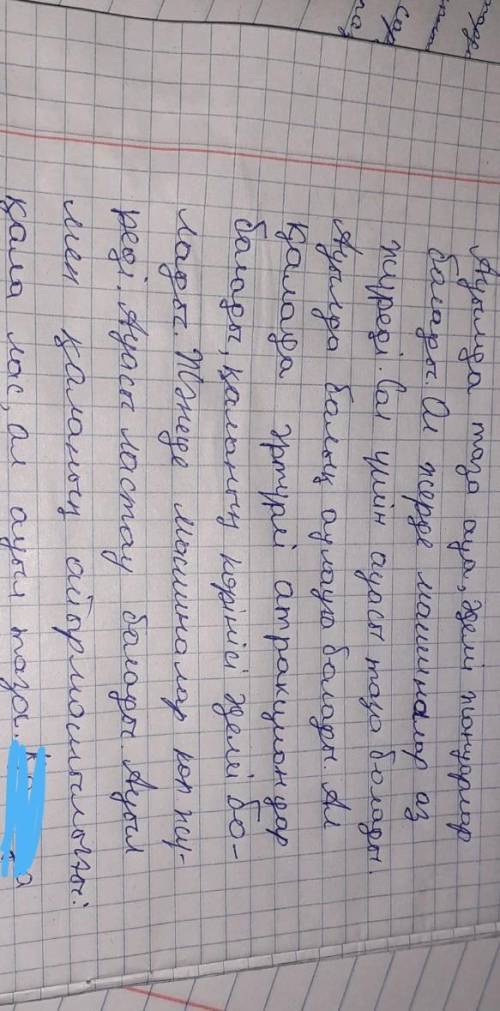 Ауылда таза ауа, әдемі жануарлар
болады. Ол жерде машиналар аз
жүреді. Сол үшін ауасы таза болады.
Ауылда балық аулауға болады. Ал
қалада әртүрлі атракциондар
болады, қаланың көрінісі әдемі бо-
лады. Және машиналар көп жү-
реді. Ауасы ластау болады. Ауыл
мен қаланың айырмашылығы:
қала лас, ал ауыл таза.